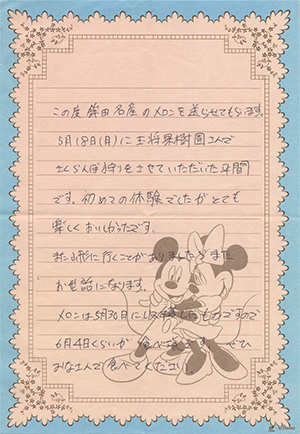 この度鉾田名産のメロンを送らせてもらいます。
5月18日(月)に王将果樹園さんで
さくらんぼ狩りをさせていただいた平間
です。初めての体験でしたがとても
楽しくおいしかったです。
また山形に行くことがありましたらまた
お世話になります。
メロンは5月30日に収穫したものですので
6月4日くらいが食べ頃です。ぜひ
みなさんで食べてください。